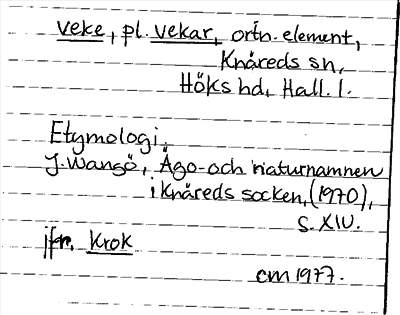 veke, pl. vekar, ortn. element,
Knäreds sn,
Höks hd, Hall. l.
Etymologi.
J. Wangö, Ägo- och naturnamnen
i Knäreds socken, (1970),
s. XIV.
jfr. Krok
cm 1977.